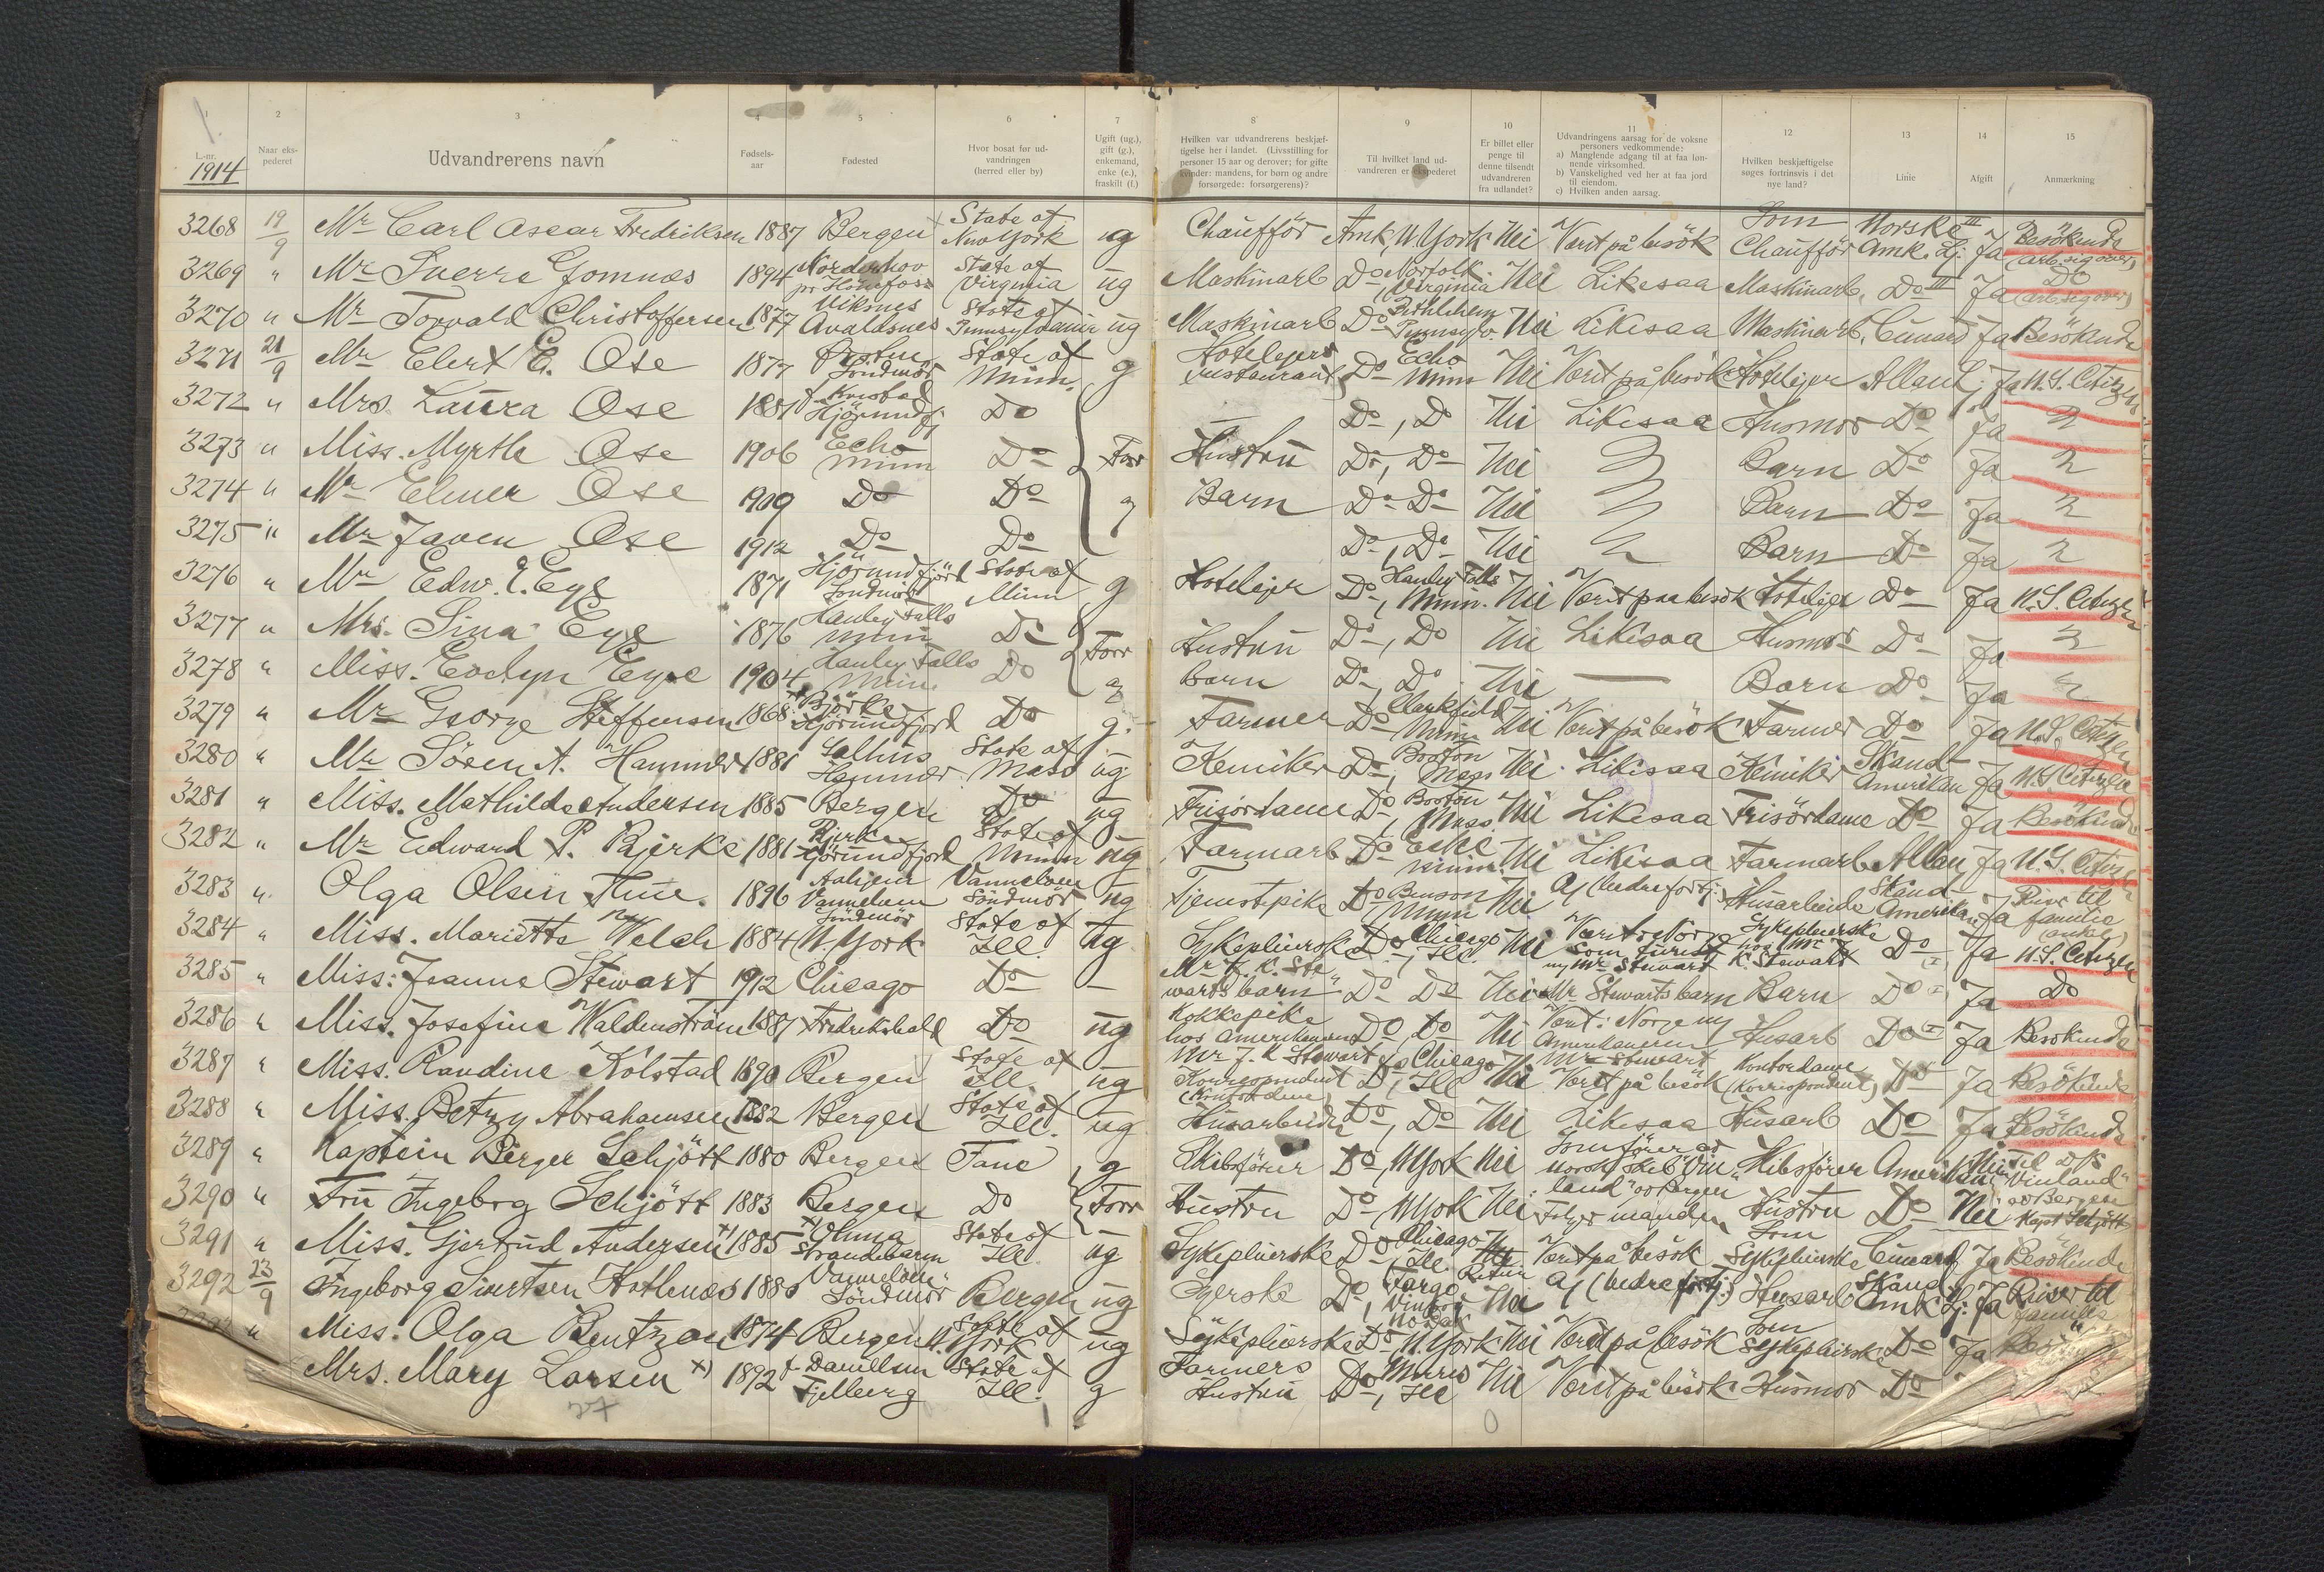 1 2 3 4 5 6 7
L.-nr. Naar eks-pederet Udvandrerens navn Fødsels-aar Fødested Hvor bosat før ud-vandringen (herred eller by) Ugift (ug.), gift (g.), enkemand, enke (e.), fraskilt (f.)
1914
8 9 10 11 12 13 14 15
Hvilken var udvandrerens beskjæf-tigelse her i landet. (Livsstilling for personer 15 aar og derover; for gifte kvinder: mandens, for børn og andre forsørgede: forsørgerens)?
Til hvilket land ud-vandreren er ekspederet
Er billet eller penge til denne tilsendt udvandreren fra udlandet?
Udvandringens aarsag for de voksne personers vedkommende:
a) Manglende adgang til at faa løn-nende virksomhed.
b) Vanskelighed ved her at faa jord til eiendom.
c) Hvilken anden aarsag.
Hvilken beskjæftigelse søges fortrinsvis i det nye land?
Linie Afgift Anmerkning
3268 19/9 Mr Carl Oscar Fredriksen 1887 Bergen State of New York ug Chaufför Amk, N. York Nei Vært på besök Som Chaufför Norske Amk. Lj. III Ja Besökende (arb. sig over)
3269 " Mr Sverre Gomnæs 1894 Norderhov pr Hönefoss State of Virginia ug Maskinarb Do Norfolk Virginia Nei Likesaa Maskinarb. Do III Ja Do (arb. sig over)
3270 " Mr Torvald Christoffersen 1877 Viksnes Avaldsnes State of Pennsylvania ug Maskinarb Do Bethlehem Pennsylv. Nei Likesaa Maskinarb. Cunard Ja Besökende
3271 21/9 Mr Elert E. Ose 1877 Örsten Söndmör State of Minn. g Hotelejer restaurant Do Echo Minn Nei Vært på besök Hotelejer Allan L. Ja U.S. Citizen
3272 " Mrs Laura Ose 1881 Hjörundfj Do Do, Do Nei Likesaa Husmor Do Ja "
3273 " Miss. Myrtle Ose 1906 Echo Minn Do Forr Hustru Do, Do Nei " Barn Do Ja "
3274 " Mr Elmer Ose 1909 Do Do g Barn Do Do Nei " Barn Do Ja "
3275 " Mr Javen Ose 1912 Do Do Do, Do Nei " Barn Do Ja "
3276 " Mr Edw. E. Eye 1871 Hjörundfjörd Söndmör State of Minn g Hotelejer Do, Hanley Falls Minn. Nei Vært paa besök Hotelejer Do Ja U.S. Citizen
3277 " Mrs. Sina Eye 1876 Hanley Falls Minn Do Forr Hustru Do, Do Nei Likesaa Husmor Do Ja "
3278 " Miss. Evelyn Eye 1904 Hanley Falls Minn. Do g Barn Do, Do Nei — Barn Do Ja "
3279 " Mr George Steffensen 1868 Björke Hjörundfjord Do g. Farmer Do Clarkfield Minn Nei Vært på besök Farmer Do Ja U.S. Citizen
3280 " Mr Sören A. Hammer 1881 Salhus Hammer State of Mass ug Kemiker Do, Boston Mass Nei Likesaa Kemiker Skand Amerikan Ja U.S. Citizen
3281 " Miss. Mathilde Andersen 1885 Bergen Do ug Frisördame Do, Boston Mass. Nei Likesaa Frisördame Do Ja Besökende
3282 " Mr Edward P. Bjerke 1881 Bjerke Hjörundfjord State of Minn ug Farmarb Do Minn. Nei Likesaa Farmarb Allan Ja U.S. Citizen
3283 " Olga Olsen Thue. 1896 Aahjem Vannelven Söndmör Vannelven Söndmör ug Tjenestpike Do Benson Minn Nei a) (bedre fortj.) Husarbeide Skand Amerikan Ja Reise til familie (onkel)
3284 " Miss. Mariette Welch 1884 N. York State of Ill. ug Sykepleierske Do, Chicago Ill. Nei Vært i Norge som turist m/ Mr Stewart Sykepleierske hos Mr K. Stewart Do (I) Ja U.S. Citizen
3285 " Miss: Jeanne Stewart 1912 Chicago Do — Mr J. K. Ste-warts barn Do Do Nei Mr Stewarts barn Barn Do (I) Ja Do
3286 " Miss. Josefine Waldenström 1887 Fredrikshald Do ug Kokkepike hos Amerikaneren Mr J. K. Stewart Do, Do Nei Vært i Norge m/ Amerikaneren Mr Stewart Husarb Do (I) Ja Besökende
3287 " Miss. Randine Kolstad 1890 Bergen State of Ill. ug Korrespondent (Kontordame) Do, Chicago Ill Nei Vært på besök Kontordame (Korrespondent) Do Ja Besökende
3288 " Miss. Betzy Abrahamsen 1882 Bergen State of Ill. ug Husarbeide Do, Do Nei Likesaa Husarb Do Ja Besökende
3289 " Kaptein Birger Schjött 1880 Bergen Fane g Skibsförer Do, N York Nei Som förer av norsk skib "Vin-land" av Bergen Skibsförer Amerikalin Nei Til D/S "Vinland" av Bergen
3290 " Fru Ingeborg Schjött 1883 Bergen Do Forr Hustru Do N York Nei Følger manden Hustru Do Nei Kapt Schjött
3291 " Miss. Gjertrud Andersen x) 1885 Strandebarm State of Ill ug Sykepleierske Do, Chicago Ill. Nei Vært på besök Som Sykepleierske Cunard Ja Besökende
3292 23/9 Ingeborg Sivertsen Hatlenæs 1886 Vannelven Söndmör Bergen ug Syerske Do, Fargo Nei a) (bedre fortj.) Husarb Skand. Amk Lj. Ja Reiser til familie
" Miss. Olga Bentzon 1874 Bergen State of N. York ug Sykepleierske Do, N. York Nei Vært på besök Som Sykepleierske Do Ja
Mrs. Mary Larsen x) 1892 Fjelberg State of Ill. g Farmers Hustru Do, Ill Nei Vært på besök Husmor Do
27